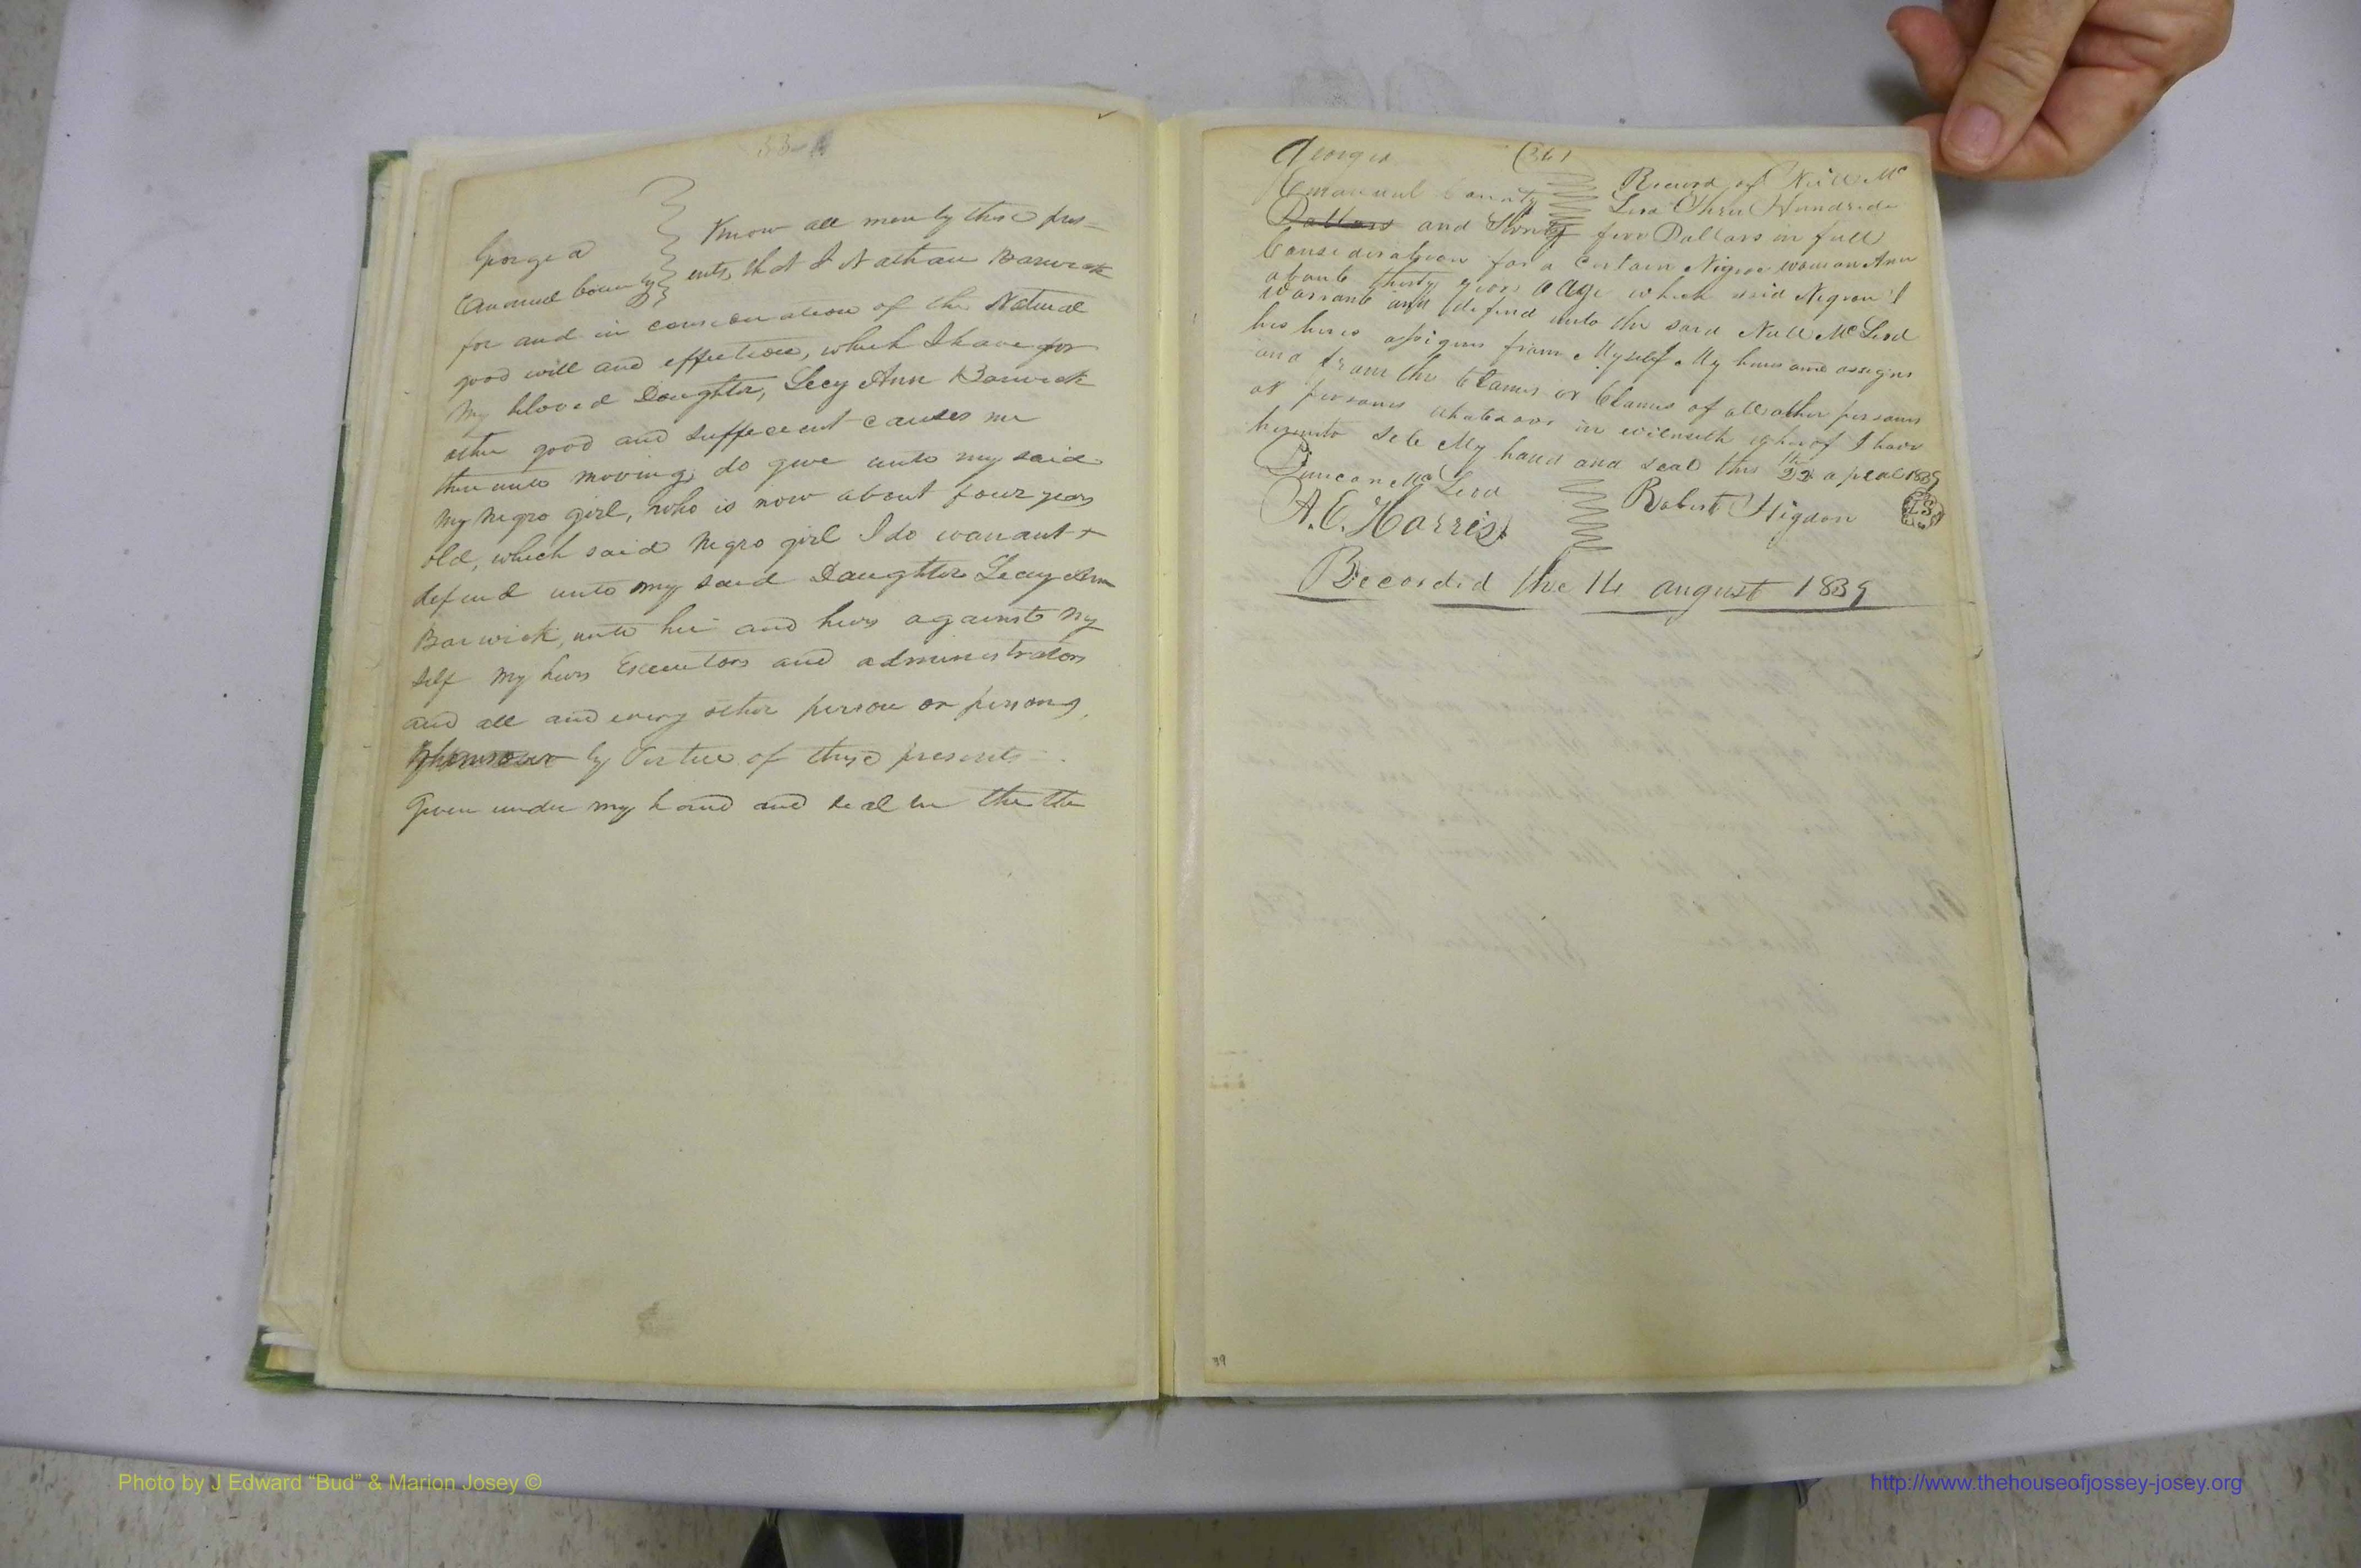 33-A
Georgia
Know all men by these pres-
Emanuel County ents, that I Nathan Barwick
for and in consideration of the Natural
good will and effection, which I have for
My beloved Daughter, Lecy Ann Barwick
other good and sufficient causes me
thereunto moving, do give unto my said
My negro girl, who is now about four years
old, which said negro girl I do warrant +
defend unto my said Daughter Lecy Ann
Barwick, unto her and heirs against my
self my heirs Executors and administrators
and all and every other person or persons,
by Virtue of these presents
Given under my hand and seal the
Georgia (36)
Emanuel County Recevd of Neill Mc
Leod Three Hundred
Dollars and five Dollars in full
Consideration for a Certain Nigroe woman Ann
aboute thirty years a Age which said Nigrow I
warrant and defend unto the said Neill McLeod
his heirs assigns from Myself My heirs and assigns
and from the Clames or Clames of all other persons
or persons whatsoever in witnesseth whereof I have
hereunto Sete My hand and seal this 22 apral 1839
Duncan McLeod
Robert Higdon LS
A. E. Harris
Recorded the 14 august 1839
39
Photo by J Edward “Bud” & Marion Josey ©
http://www.thehouseofjossey-josey.org